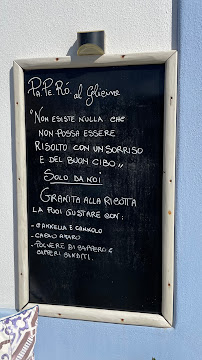 Pa.Pe.Rò. al Glicine
"Non esiste nulla che
non possa essere
risolto con un sorriso
e del buon cibo,,
Solo da noi
Granita alla ricotta
la puoi gustare con:
- cannella e cannolo
- cacao amaro
- polvere di cappero e
capperi canditi.